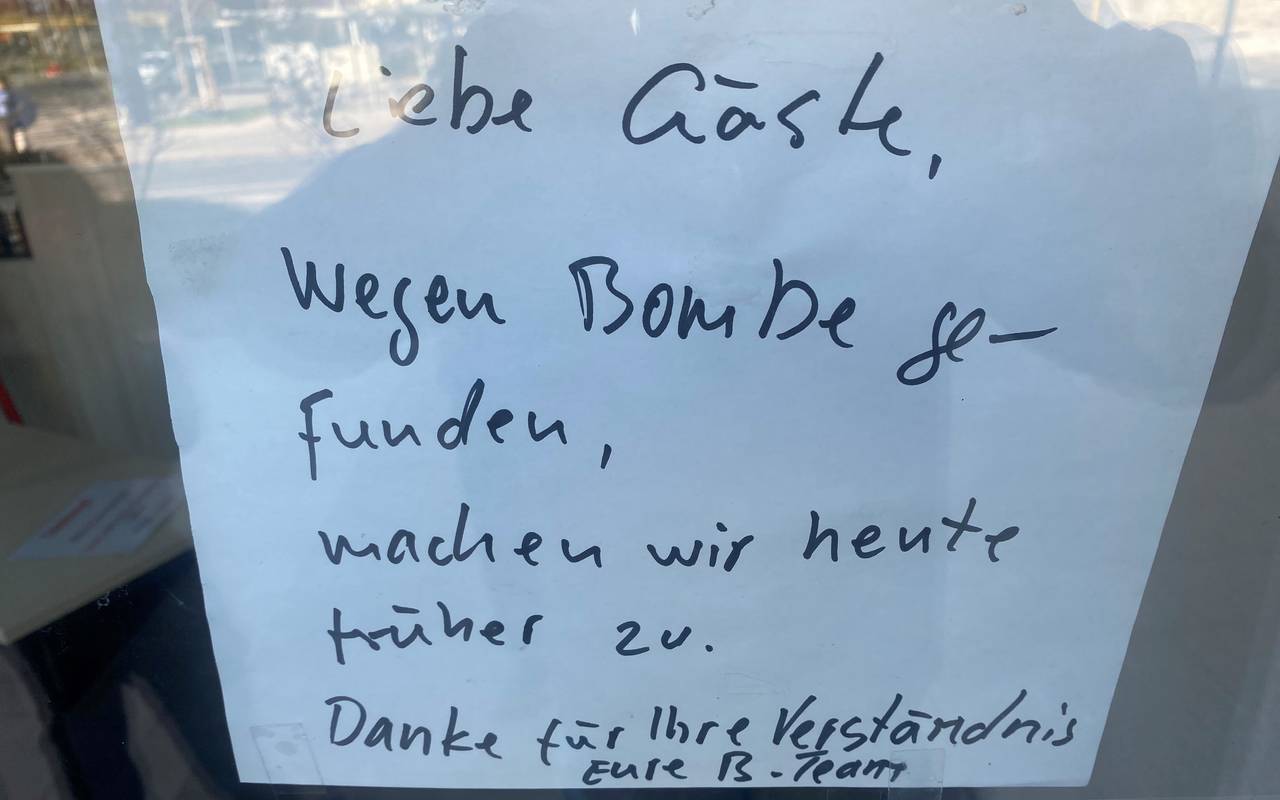 Liebe Gäste,
Wegen Bombe ge-
funden,
machen wir heute
früher zu.
Danke für Ihre Verständnis
Eure B.-Team